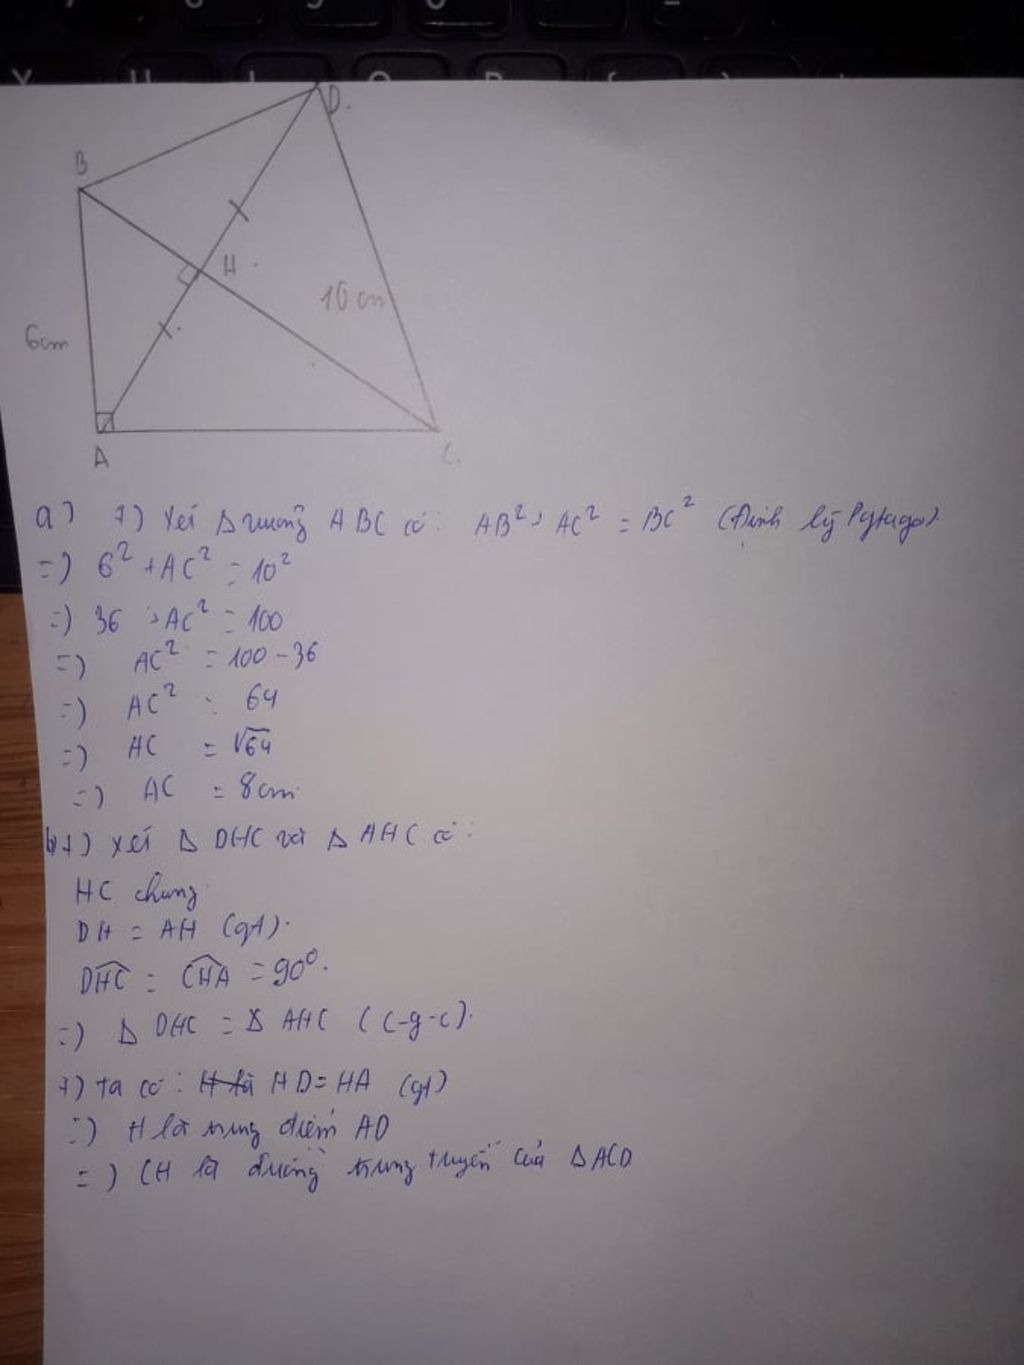 D.
B
H
10 cm
6cm
A
C.
a) +) Xét Δ vuông ABC có: AB² + AC² = BC² (Định lý Pytago).
=) 6² + AC² = 10²
=) 36 + AC² = 100
=) AC² = 100 - 36
=) AC² = 64
=) AC = √64
=) AC = 8cm
b) +) Xét Δ DHC và Δ AHC có:
HC chung
DH = AH (gt).
DHC = CHA = 90°.
=) Δ DHC = Δ AHC (c-g-c).
+) ta có: H là HD = HA (gt)
=) H là trung điểm AD
=) CH là đường trung tuyến của ΔACD